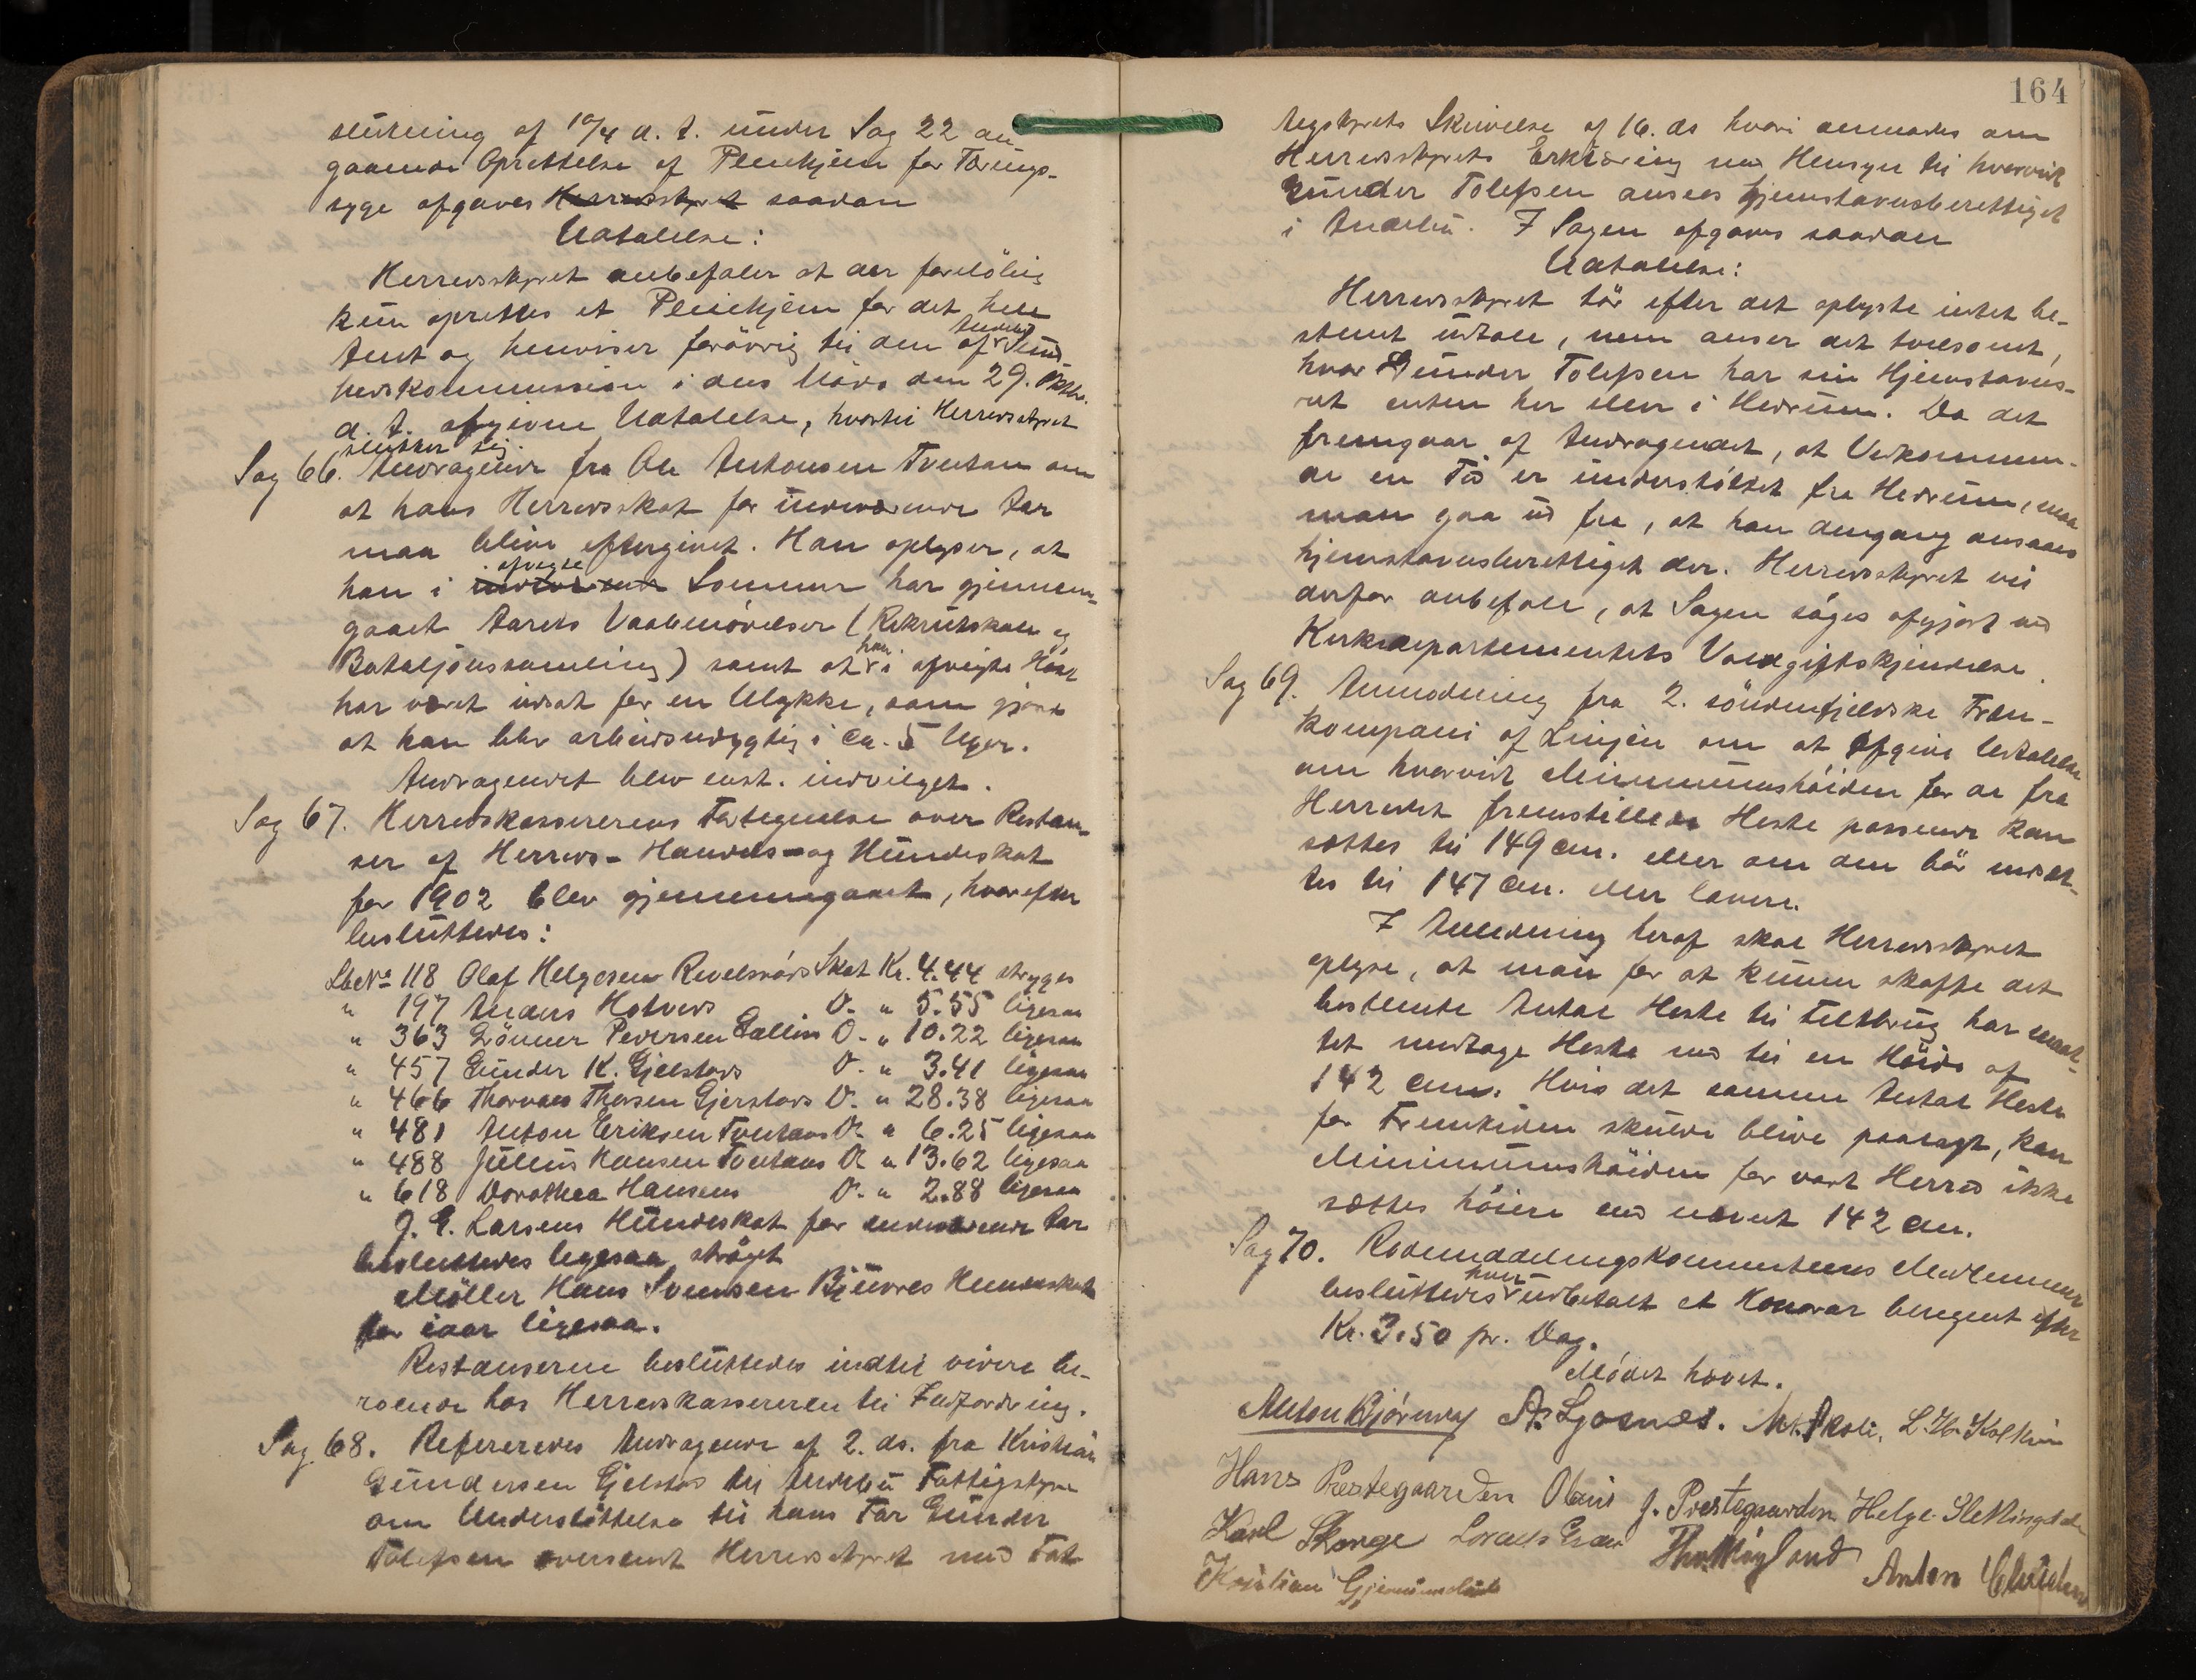 slutning af 10/4 d. A. under Sag 22 an-
gaaende Oprettelse af Pleiehjem for Tærings-
syge afgaves Herredsstyret saadan
Udtalelse:
Herredsstyret anbefaler at der foreløbig
kun oprettes et Pleiehjem for det hele
Amt og henviser forøvrig til den af Andebu Sund-
hedskommission i dens Møde den 29. Oktbr.
d. A. afgivne Udtalelse, hvortil Herredsstyret
slutter sig.
Sag 66. Andragende fra Ole Antonsen Tventan om
at hans Herredsskat for indeværende Aar
maa blive eftergivet. Han oplyser, at
han i afvigte Sommer har gjennem-
gaaet Aarets Vaabenøvelser (Rekrutskole og
Bataljonssamling) samt at han i afvigte Høst
har været udsat for en Ulykke, som gjorde
at han blev arbeidsudygtig i ca. 5 Uger.
Andragendet blev enst. indvilget.
Sag 67. Herredskassererens Fortegnelse over Restan-
ser af Herreds- Handels- og Hundeskat
for 1902 blev gjennemgaaet, hvorefter
besluttedes:
Lbe No 118 Olaf Helgesen Revelsrøds Skat Kr. 4.44 stryges
" 197 Anders Hotveds D. " 5.55 ligesaa
" 363 Gönner Pedersen Dallins D. " 10.22 ligesaa
" 457 Gunder K. Gjelstads D. " 3.41 ligesaa
" 466 Thorvald Thorsen Gjerstads D. " 28.38 ligesaa
" 481 Anton Eriksen Tventans D. " 6.25 ligesaa
" 488 Julius Hansen Tventans D. " 13.62 ligesaa
" 618 Dorothea Hansens D. " 2.88 ligesaa
J. E. Larsens Hundeskat for indeværende Aar
besluttedes ligesaa strøget
Møller Hans Svendsen Bjuerøds Hundeskat
for iaar ligesaa.
Restanserne besluttedes indtil videre be-
roende hos Herredskassereren til Indfordring.
Sag 68. Refereredes Andragende af 2. ds. fra Kristian
Gundersen Gjelstad til Andebu Fattigstyre
om Understøttelse til hans Far Gunder
Tolefsen oversendt Herredsstyret med Fat-
164
tigstyrets Skrivelse af 16. ds hvori anmodes om
Herredsstyrets Erklæring med Hensyn til hvorvidt
Gunder Tolefsen ansees hjemstavnsberettiget
i Andebu. I Sagen afgaves saadan
Udtalelse:
Herredsstyret tør efter det oplyste intet be-
stemt udtale, men anser det tvilsomt,
hvor Gunder Tolefsen har sin Hjemstavns-
ret enten her eller i Hedrum. Da det
fremgaar af Andragendet, at Vedkommen-
de en Tid er understøttet fra Hedrum, maa
man gaa ud fra, at han dengang ansaaes
hjemstavnsberettiget der. Herredsstyret vil
derfor anbefale, at Sagen søges afgjort ved
Kirkedepartementets Voldgiftskjendelse.
Sag 69. Anmodning fra 2. söndenfjeldske Træn-
kompani af Linjen om at afgive Udtalelse
om hvorvidt Minimumshøiden for de fra
Herredet fremstillede Heste passende kan
sættes til 149 cm. eller om den bør nedsæt-
tes til 147 cm. eller lavere.
I Anledning heraf skal Herredsstyret
oplyse, at man for at kunne skaffe det
bestemte Antal Heste til Feltbrug har maat-
tet medtage Heste ned til en Høide af
142 cm. Hvis det samme Antal Heste
for Fremtiden skulde blive paalagt, kan
Minimumshøiden for vort Herred ikke
sættes høiere end nævnt 142 cm.
Sag 70. Rodeinddelingskommiteens Medlemmer
besluttedes hver udbetalt et Honorar beregnet efter
Kr. 3.50 pr. Dag.
Mødet hævet.
Anton Bjørndal A. Gjosnæs. M. Askli, L. Hr. Kolkin
Hans Prestegaarden Olaus J. Prestegaarden Helge Sletlingdalen
Karl Skorge Lorents Gran Thv. Møyland Anton
Kristian